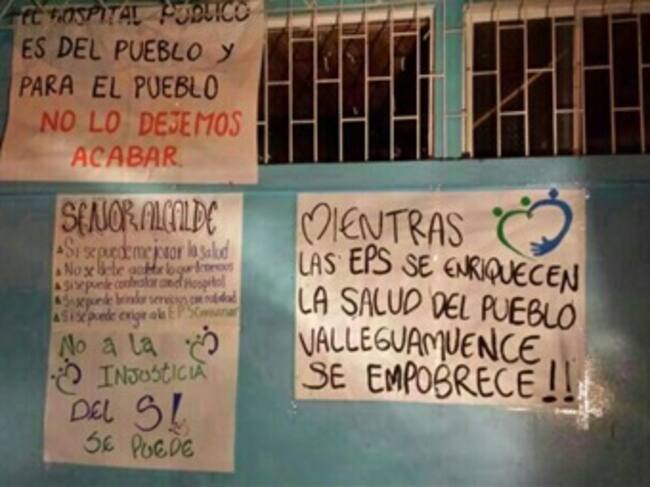 EL HOSPITAL PUBLICO
ES DEL PUEBLO Y
PARA EL PUEBLO
NO LO DEJEMOS
ACABAR.
SEÑOR ALCALDE
Si se puede mejorar la salud
No se debe acabar lo que tenemos
Si se puede contratar con el Hospital
Si se puede brindar servicios con calidad
Si se puede exigir a la EPS
No A LA
INJUSTICIA
DEL SI
SE PUEDE
MIENTRAS
LAS EPS SE ENRIQUECEN
LA SALUD DEL PUEBLO
VALLEGUAMUENCE
SE EMPOBRECE!!